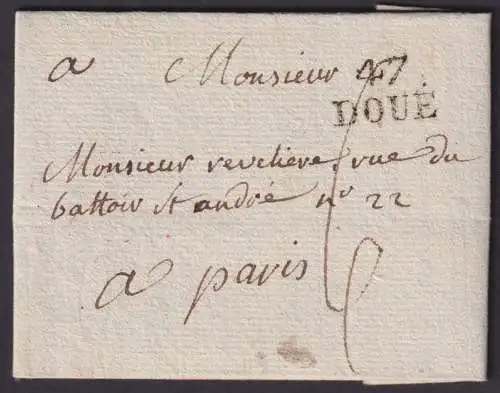 a Monsieur 47
DOUÉ
Monsieur reveliere rue du
battoir St andré no 22
a paris